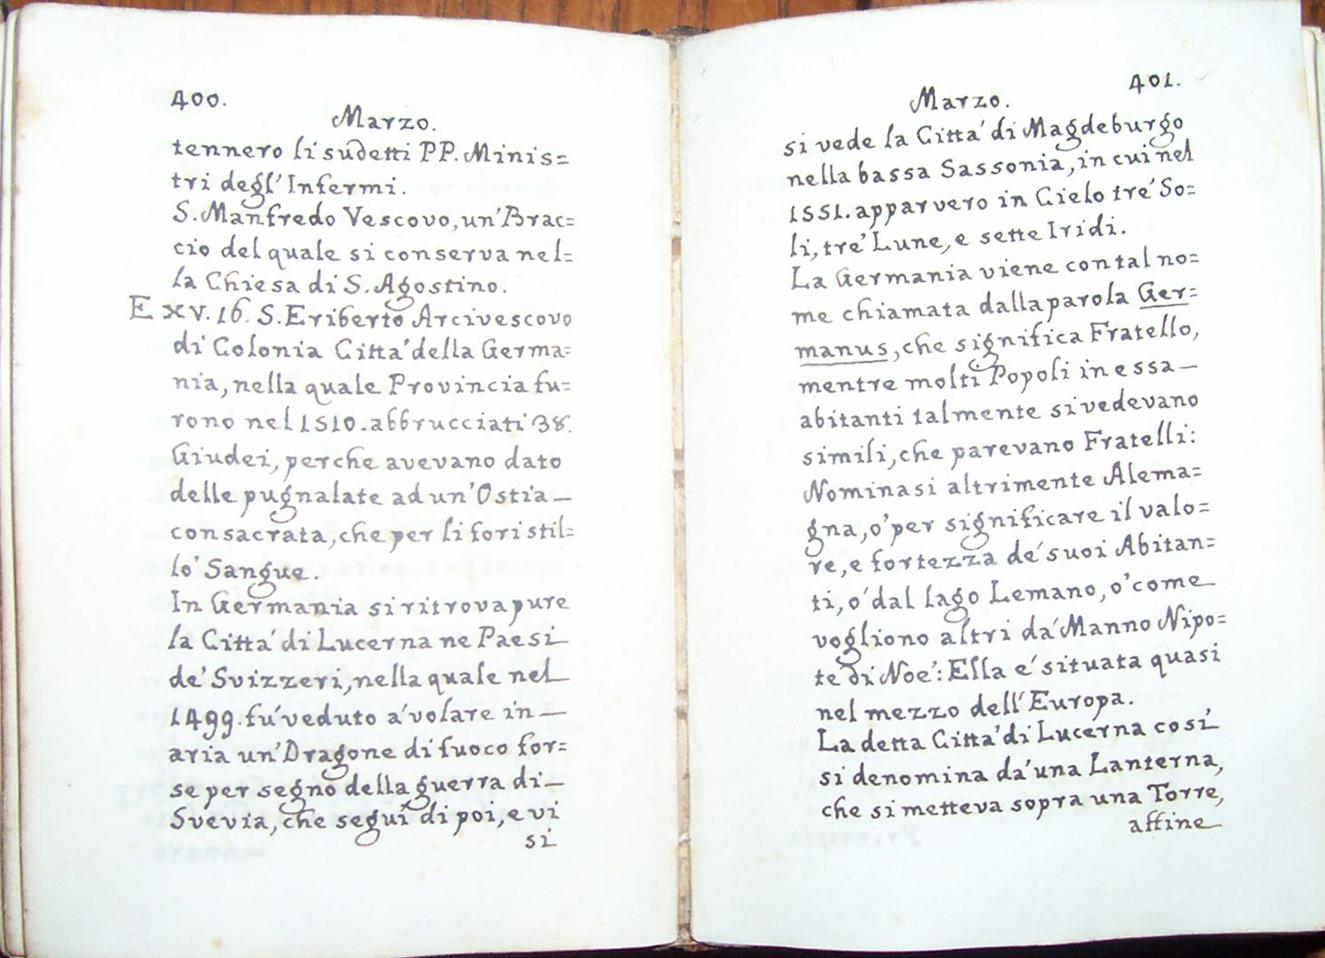 400.
Marzo.
tennero li sudetti PP. Minis=
tri degl' Infermi.
S. Manfredo Vescovo, un' Brac=
cio del quale si conserva nel=
la Chiesa di S. Agostino.
E xv. 16. S. Eriberto Arcivescovo
di Colonia Citta' della Germa=
nia, nella quale Provincia fu=
rono nel 1510. abbrucciati 38.
Giudei, perche avevano dato
delle pugnalate ad un' Ostia —
consacrata, che per li fori stil=
lo' Sangue.
In Germania si ritrova pure
la Citta' di Lucerna ne Paesi
de' Svizzeri, nella quale nel
1499. fu' veduto a' volare in —
aria un' Dragone di fuoco for=
se per segno della guerra di —
Svevia, che segui di poi, e vi
si
401.
Marzo.
si vede la Citta' di Magdeburgo
nella bassa Sassonia, in cui nel
1551. apparvero in Cielo tre' So=
li, tre' Lune, e sette Iridi.
La Germania viene con tal no=
me chiamata dalla parola Ger=
manus, che significa Fratello,
mentre molti Popoli in essa —
abitanti talmente si vedevano
simili, che parevano Fratelli:
Nominasi altrimente Alema=
gna, o' per significare il valo=
re, e fortezza de' suoi Abitan=
ti, o' dal lago Lemano, o' come
vogliono altri da' Manno Nipo=
te di Noe': Ella e' situata quasi
nel mezzo dell' Europa.
La detta Citta' di Lucerna cosi'
si denomina da' una Lanterna,
che si metteva sopra una Torre,
affine